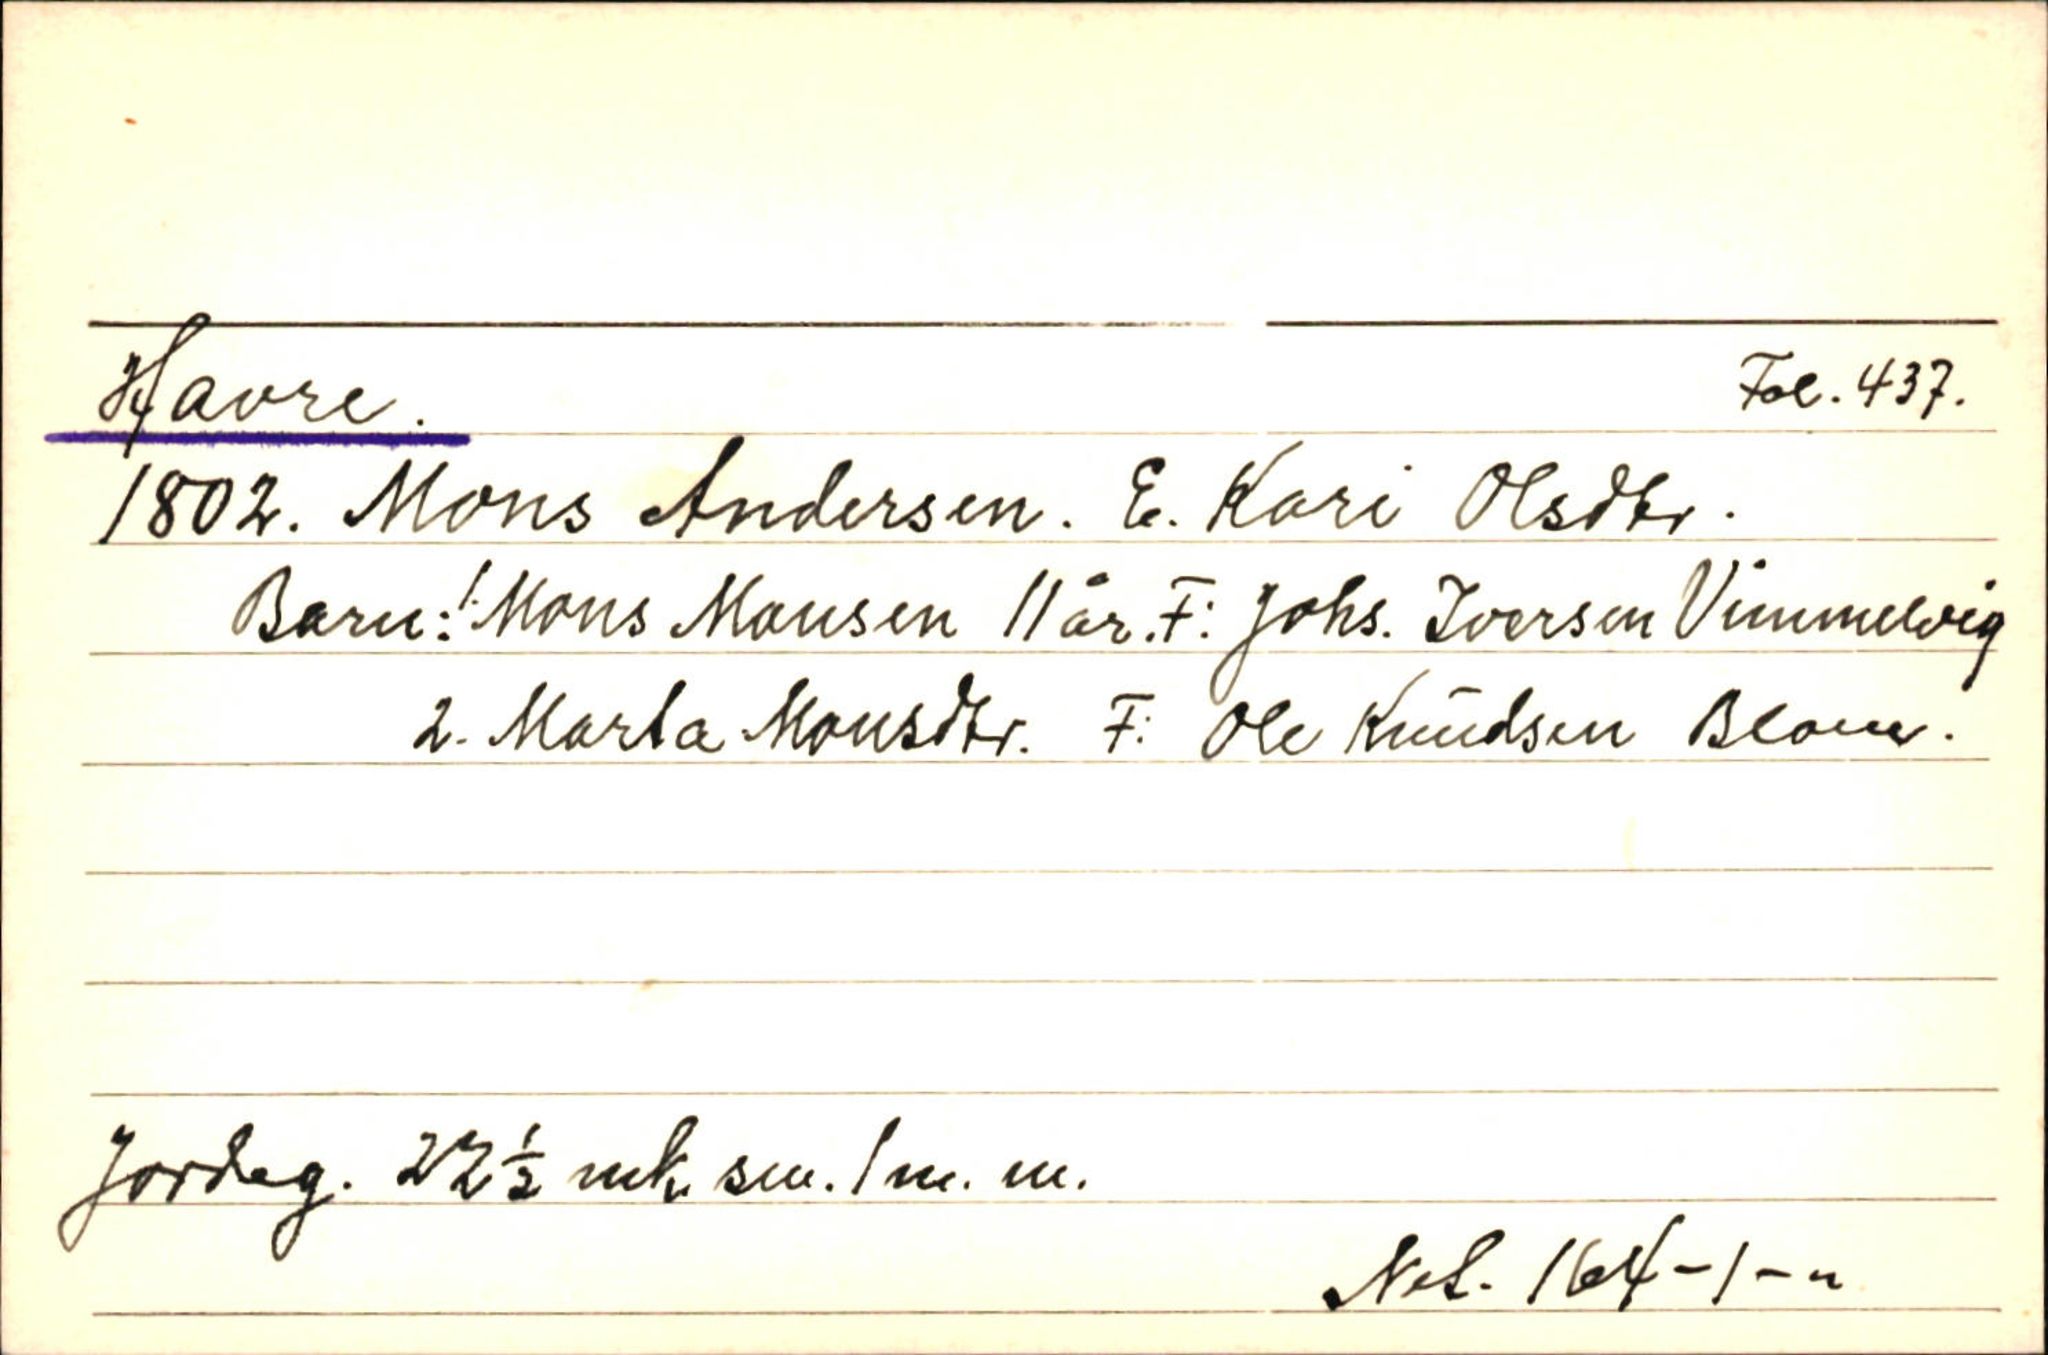 Havre. Fol. 437.
1802. Mons Andersen. E. Kari Olsdtr.
Barn: 1. Mons Monsen 11 år. F: Johs. Iversen Vimmelvig
2. Marta Monsdtr. F: Ole Knudsen Blom.
Jordeg. 22 1/2 mk sm. 1 m. m.
Net. 164-1-"